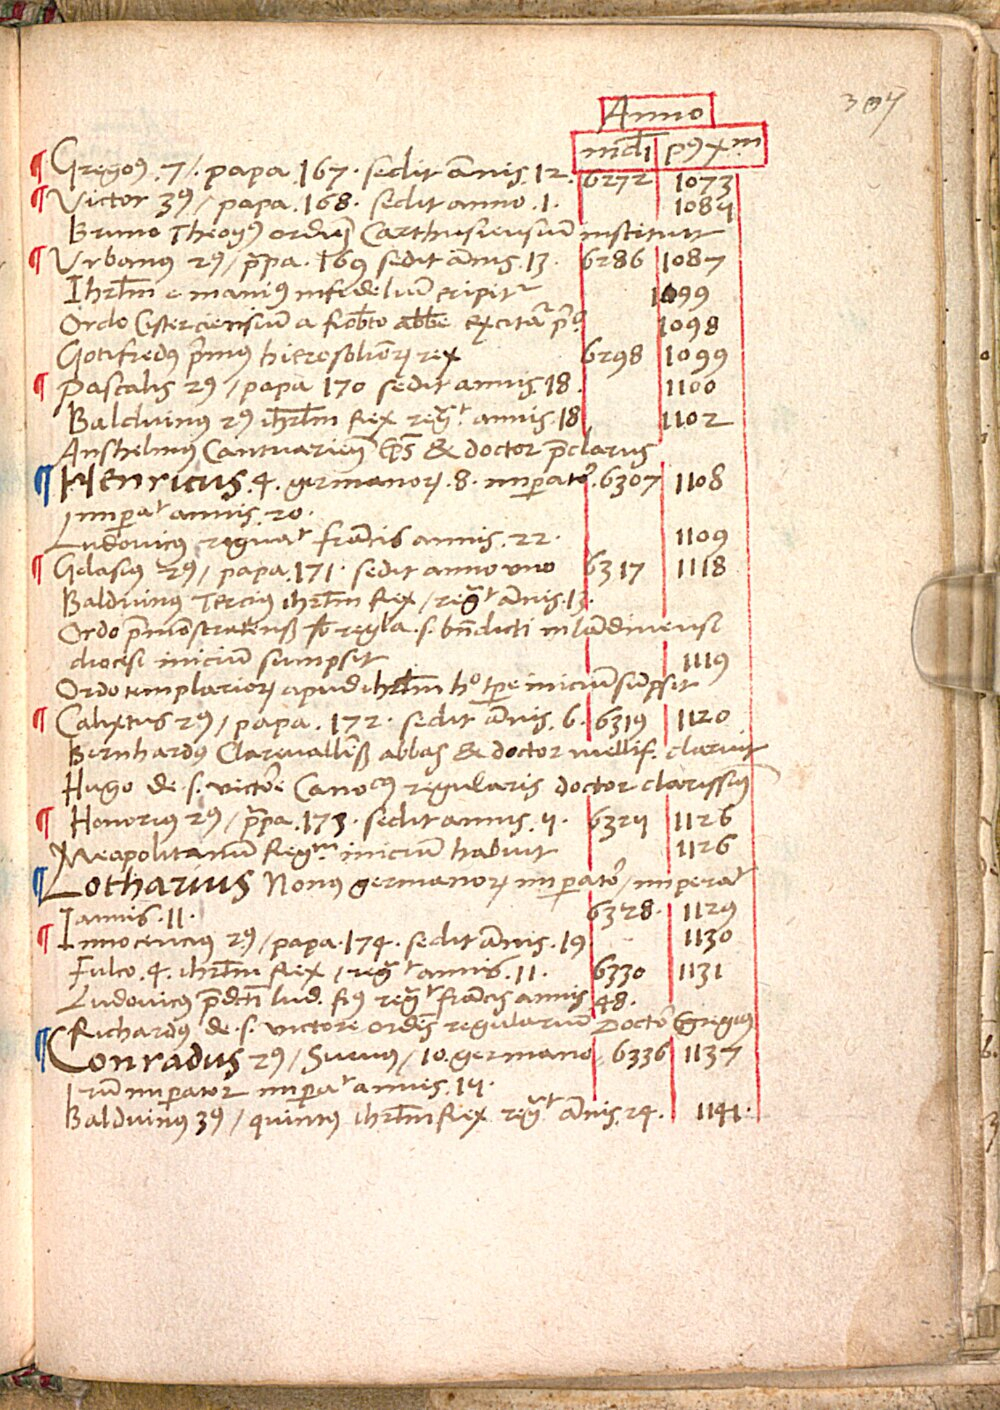 Anno
307
mūdi p9 xm
Gregoꝰ .7. / papa .167. sedit ānis .12. 6272 1073
Victor 3ꝰ / papa .168. sedit anno .1. 1084
Bruno Theoꝰ ordinē Carthusiensiū instituit
Vrbanꝰ 2ꝰ / p̄pa .169 sedit ānis .13. 6286 1087
Ihrl̄m e manibꝰ infideliū eripitr 1099
Ordo Cisterciensiū a robto abbe 1098
Gotifredꝰ p̄mus hierosolimoꝝ rex 6298 1099
Pascalis 2ꝰ / papa 170 sedit annis 18. 1100
Balduinꝰ 2ꝰ ihrl̄m Rex regt annis .18 1102
Anshelmꝰ Cantuarieñ ep̄s & doctor p̄clarus
Henricus .4. germanoꝝ .8. imperator .6307 1108
imperat annis .20.
Ludovicꝰ regnat frācis annis .22. 1109
Gelasius 2ꝰ / papa .171. sedit anno uno 6317 1118
Balduinus Tercius ihrl̄m Rex / regt ānis .13.
Ordo p̄mōstratenß sb regla .s. bn̄dicti in laudinensi
diocesi iniciū sumpsit 1119
Ordo templarioꝝ apud ihrl̄m ho tpe iniciū sūpsit
Calixtus 2ꝰ / papa .172. sedit ānis .6. 6319 1120
Bernhardꝰ Clarevallēß abbas & doctor mellif. claruit
Hugo de .s. victore Canocꝰ regularis doctor clarissimꝰ
Honorius 2ꝰ / p̄pa .173. sedit annis .4. 6324 1126
Neapolitanū Regm iniciū habuit 1126
Lotharius Nonꝰ germanoꝝ imperator / imperat
annis .11. 6328. 1129
Innocencius 2ꝰ / papa .174. sedit ānis .19 1130
Fulco .4. ihrl̄m Rex / regt annis .11. 6330 1131
Ludovicꝰ p̄dcti lud. fiꝰ regt francis annis 48.
Richardꝰ de .s. victore ordīs regulariū Doctor Egregiꝰ
Conradus 2ꝰ / Suevus / 10. germano 6336 1137
rū imperator imperat annis .14.
Balduinꝰ 3ꝰ / quintꝰ ihrl̄m Rex regt ānis .24. 1141.